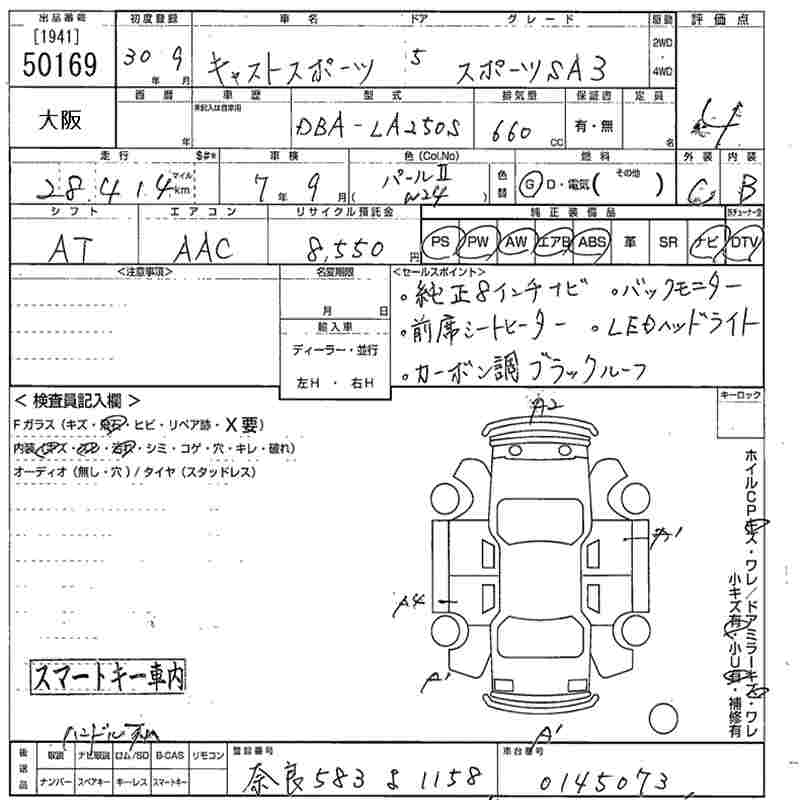 出品番号 初度登録 車名 ドア グレード 駆動 評価点
[1941]
50169
30年 9月 キャストスポーツ 5 スポーツSA3 2WD・4WD 4
大阪 西暦 車歴 型式 排気量 保証書 定員
年 未記入は自家用 DBA-LA250S 660cc 有・無 名
走行 S#* 車検 色(Col.No) 燃料 外装 内装
28.414 マイル km 7年 9月 (パールⅡ W24) 色替 G D・電気( その他 ) C B
シフト エアコン リサイクル預託金 純正装備品
AT AAC 8,550円 PS PW AW エアB ABS 革 SR ナビ DTV
<注意事項> 名変期限 <セールスポイント>
月 日
・純正8インチナビ ・バックモニター
輸入車
・前席シートヒーター ・LEDヘッドライト
ディーラー・並行
・カーボン調ブラックルーフ
左H・右H
キーロック
< 検査員記入欄 >
Fガラス(キズ・飛石・ヒビ・リペア跡・X要)
内装(キズ・スレ・汚れ・シミ・コゲ・穴・キレ・破れ)
オーディオ(無し・穴)/タイヤ(スタッドレス)
A2
A1
A4
A1
A1
ホイルCPキズ・ワレ/ドアミラーキズ・ワレ
小キズ有・小U有・補修有
スマートキー車内
後送品 取説 ナビ取説 ロム/SD B-CAS リモコン 登録番号 車台番号
ナンバー スペアキー キーレス スマートキー 奈良 583 1158 0145073